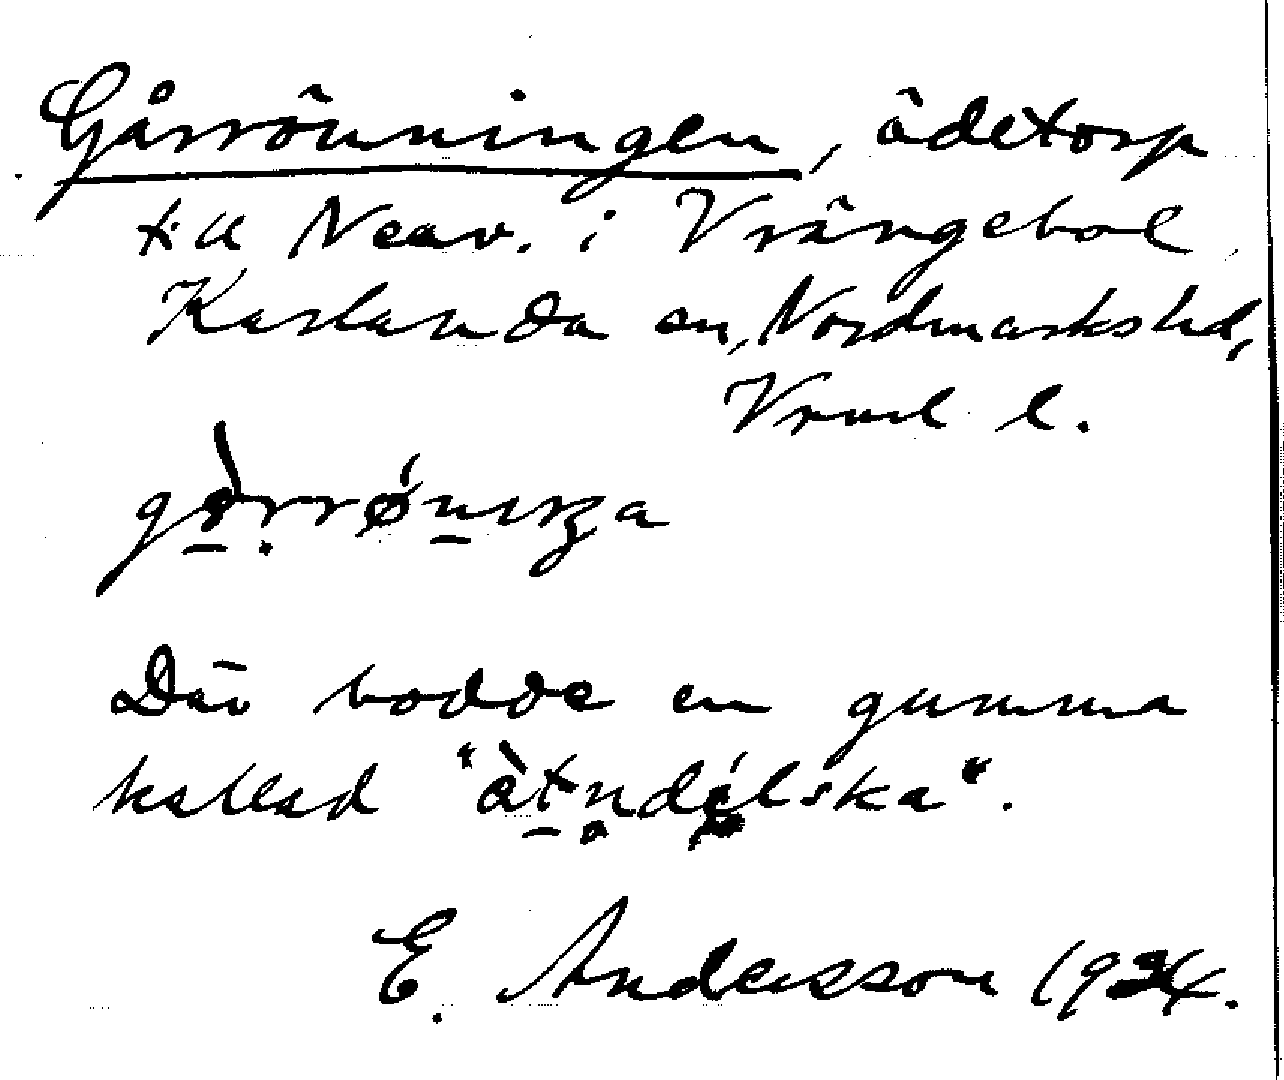 Gårrönningen, ödetorp
till Nedv. i Vrångebol
Karlanda sn, Nordmarks hd,
Vrml l.
Där bodde en gumma
kallad "àtndélska".
E. Andersson 1934.